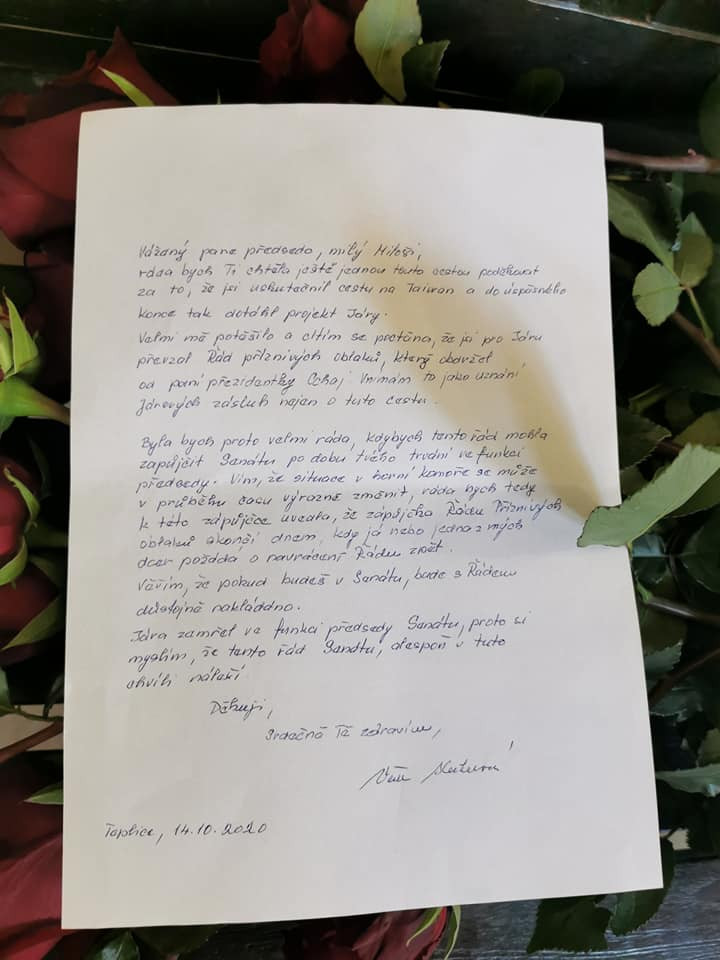 Vážený pane předsedo, milý Miloši,
ráda bych Ti chtěla ještě jednou touto cestou poděkovat
za to, že jsi uskutečnil cestu na Taiwan a do úspěšného
konce tak dotáhl projekt Járy.
Velmi mě potěšilo a cítím se poctěna, že jsi pro Járu
převzal Řád příznivých oblaků, který obdržel
od paní prezidentky Cchaj. Vnímám to jako uznání
Járových zásluh nejen o tuto cestu.
Byla bych proto velmi ráda, kdybych tento řád mohla
zapůjčit Senátu po dobu tvého trvání ve funkci
předsedy. Vím, že situace v horní komoře se může
v průběhu času výrazně změnit, ráda bych tedy
k této zápůjčce uvedla, že zápůjčka Řádu Příznivých
oblaků skončí dnem, kdy já nebo jedna z mých
dcer požádá o navrácení Řádu zpět.
Věřím, že pokud budeš v Senátu, bude s Řádem
důstojně nakládáno.
Jára zemřel ve funkci předsedy Senátu, proto si
myslím, že tento řád Senátu, alespoň v tuto
chvíli náleží.
Děkuji,
Srdečně Tě zdravím,
Věra
Teplice, 14.10.2020